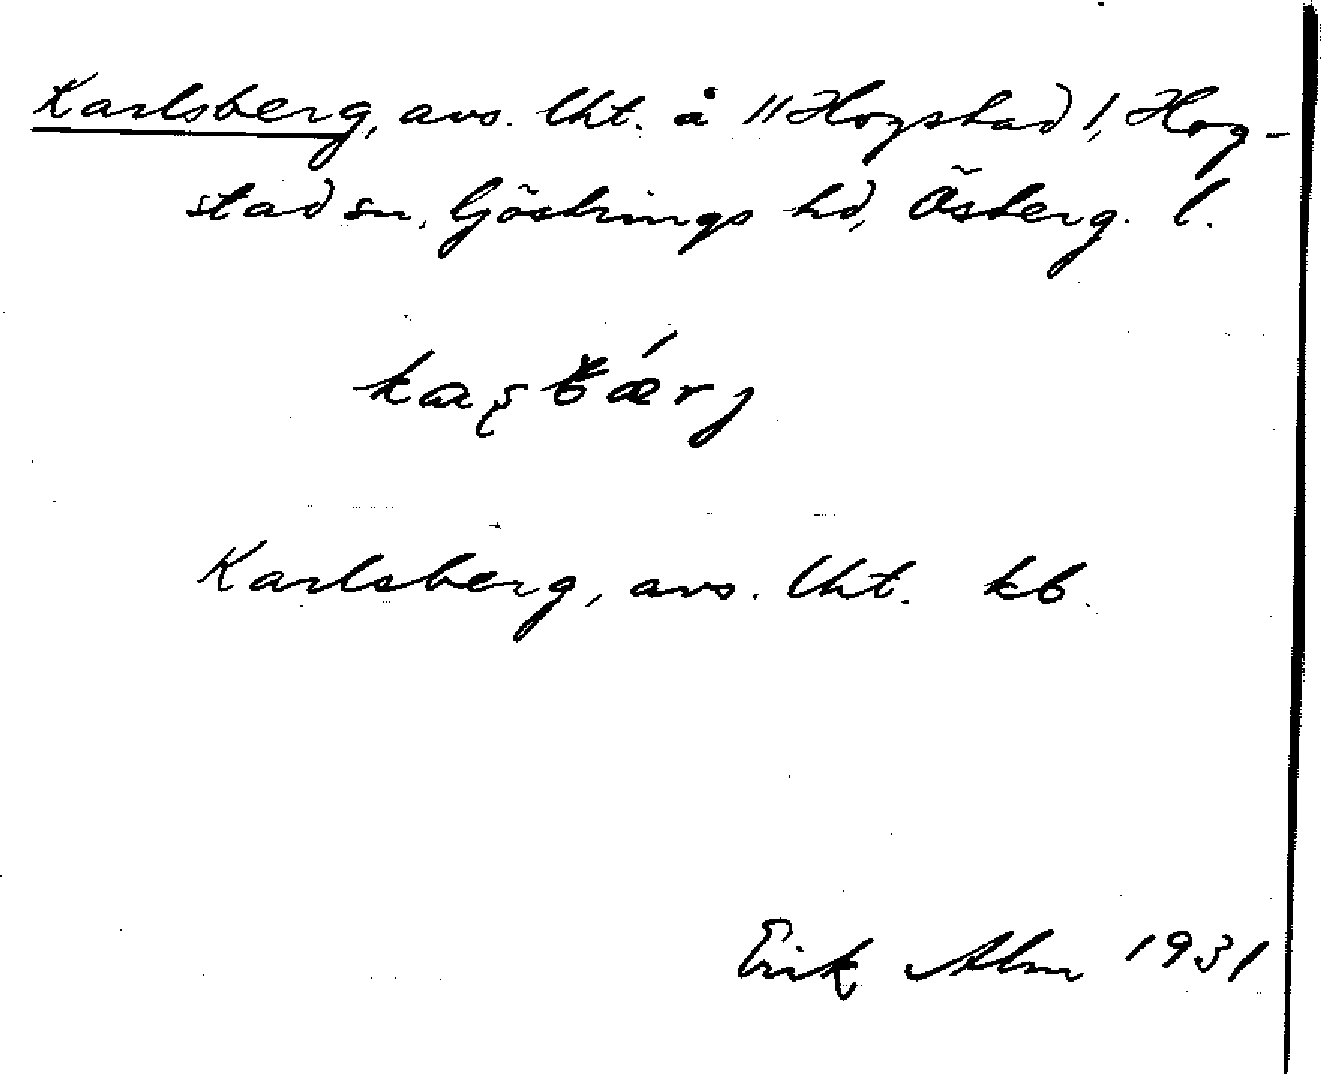 Karlsberg, avs. lht. å "Hogstad 1, Hog-
stad sn, Göstrings hd, Österg. l.
Karlsberg, avs. lht. kb.
Erik Alm 1931